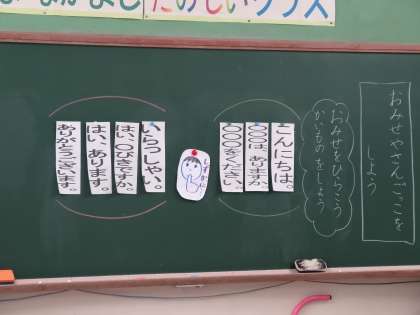 たのしいクラス
おみせやさんごっこを
しよう
おみせをひらこう
かいものをしよう
こんにちは。
〇〇〇は、ありますか。
〇〇〇をください。
しずかに
いらっしゃい。
はい、〇びきですか。
はい、あります。
ありがとうございます。